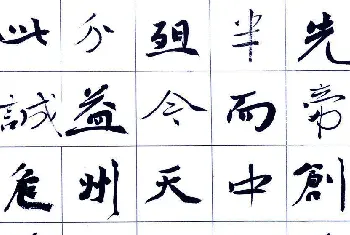 先帝創
半而中
殂今天
分益州
此誠危